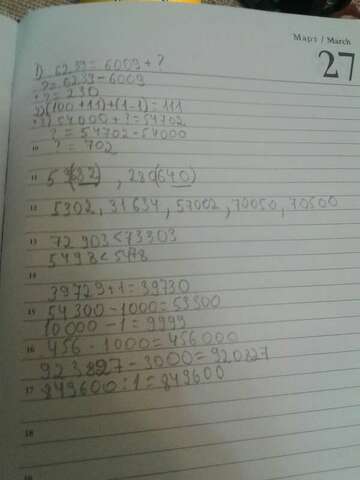 Март / March
27
1) 6239 = 6009 + ?
? = 6239 - 6009
? = 230
2) (100 + 11) + (1 - 1) = 111
3) 54000 + ? = 54702
? = 54702 - 54000
10 ? = 702
11 , 280(640)
12 5302, 31634, 57002, 70050, 70500
13 72903 < 73303
5498 < 5478
14
39729 + 1 = 39730
15 54300 - 1000 = 53300
10000 - 1 = 9999
16 456 · 1000 = 456000
923827 - 3000 = 920827
17 849600 : 1 = 849600
18